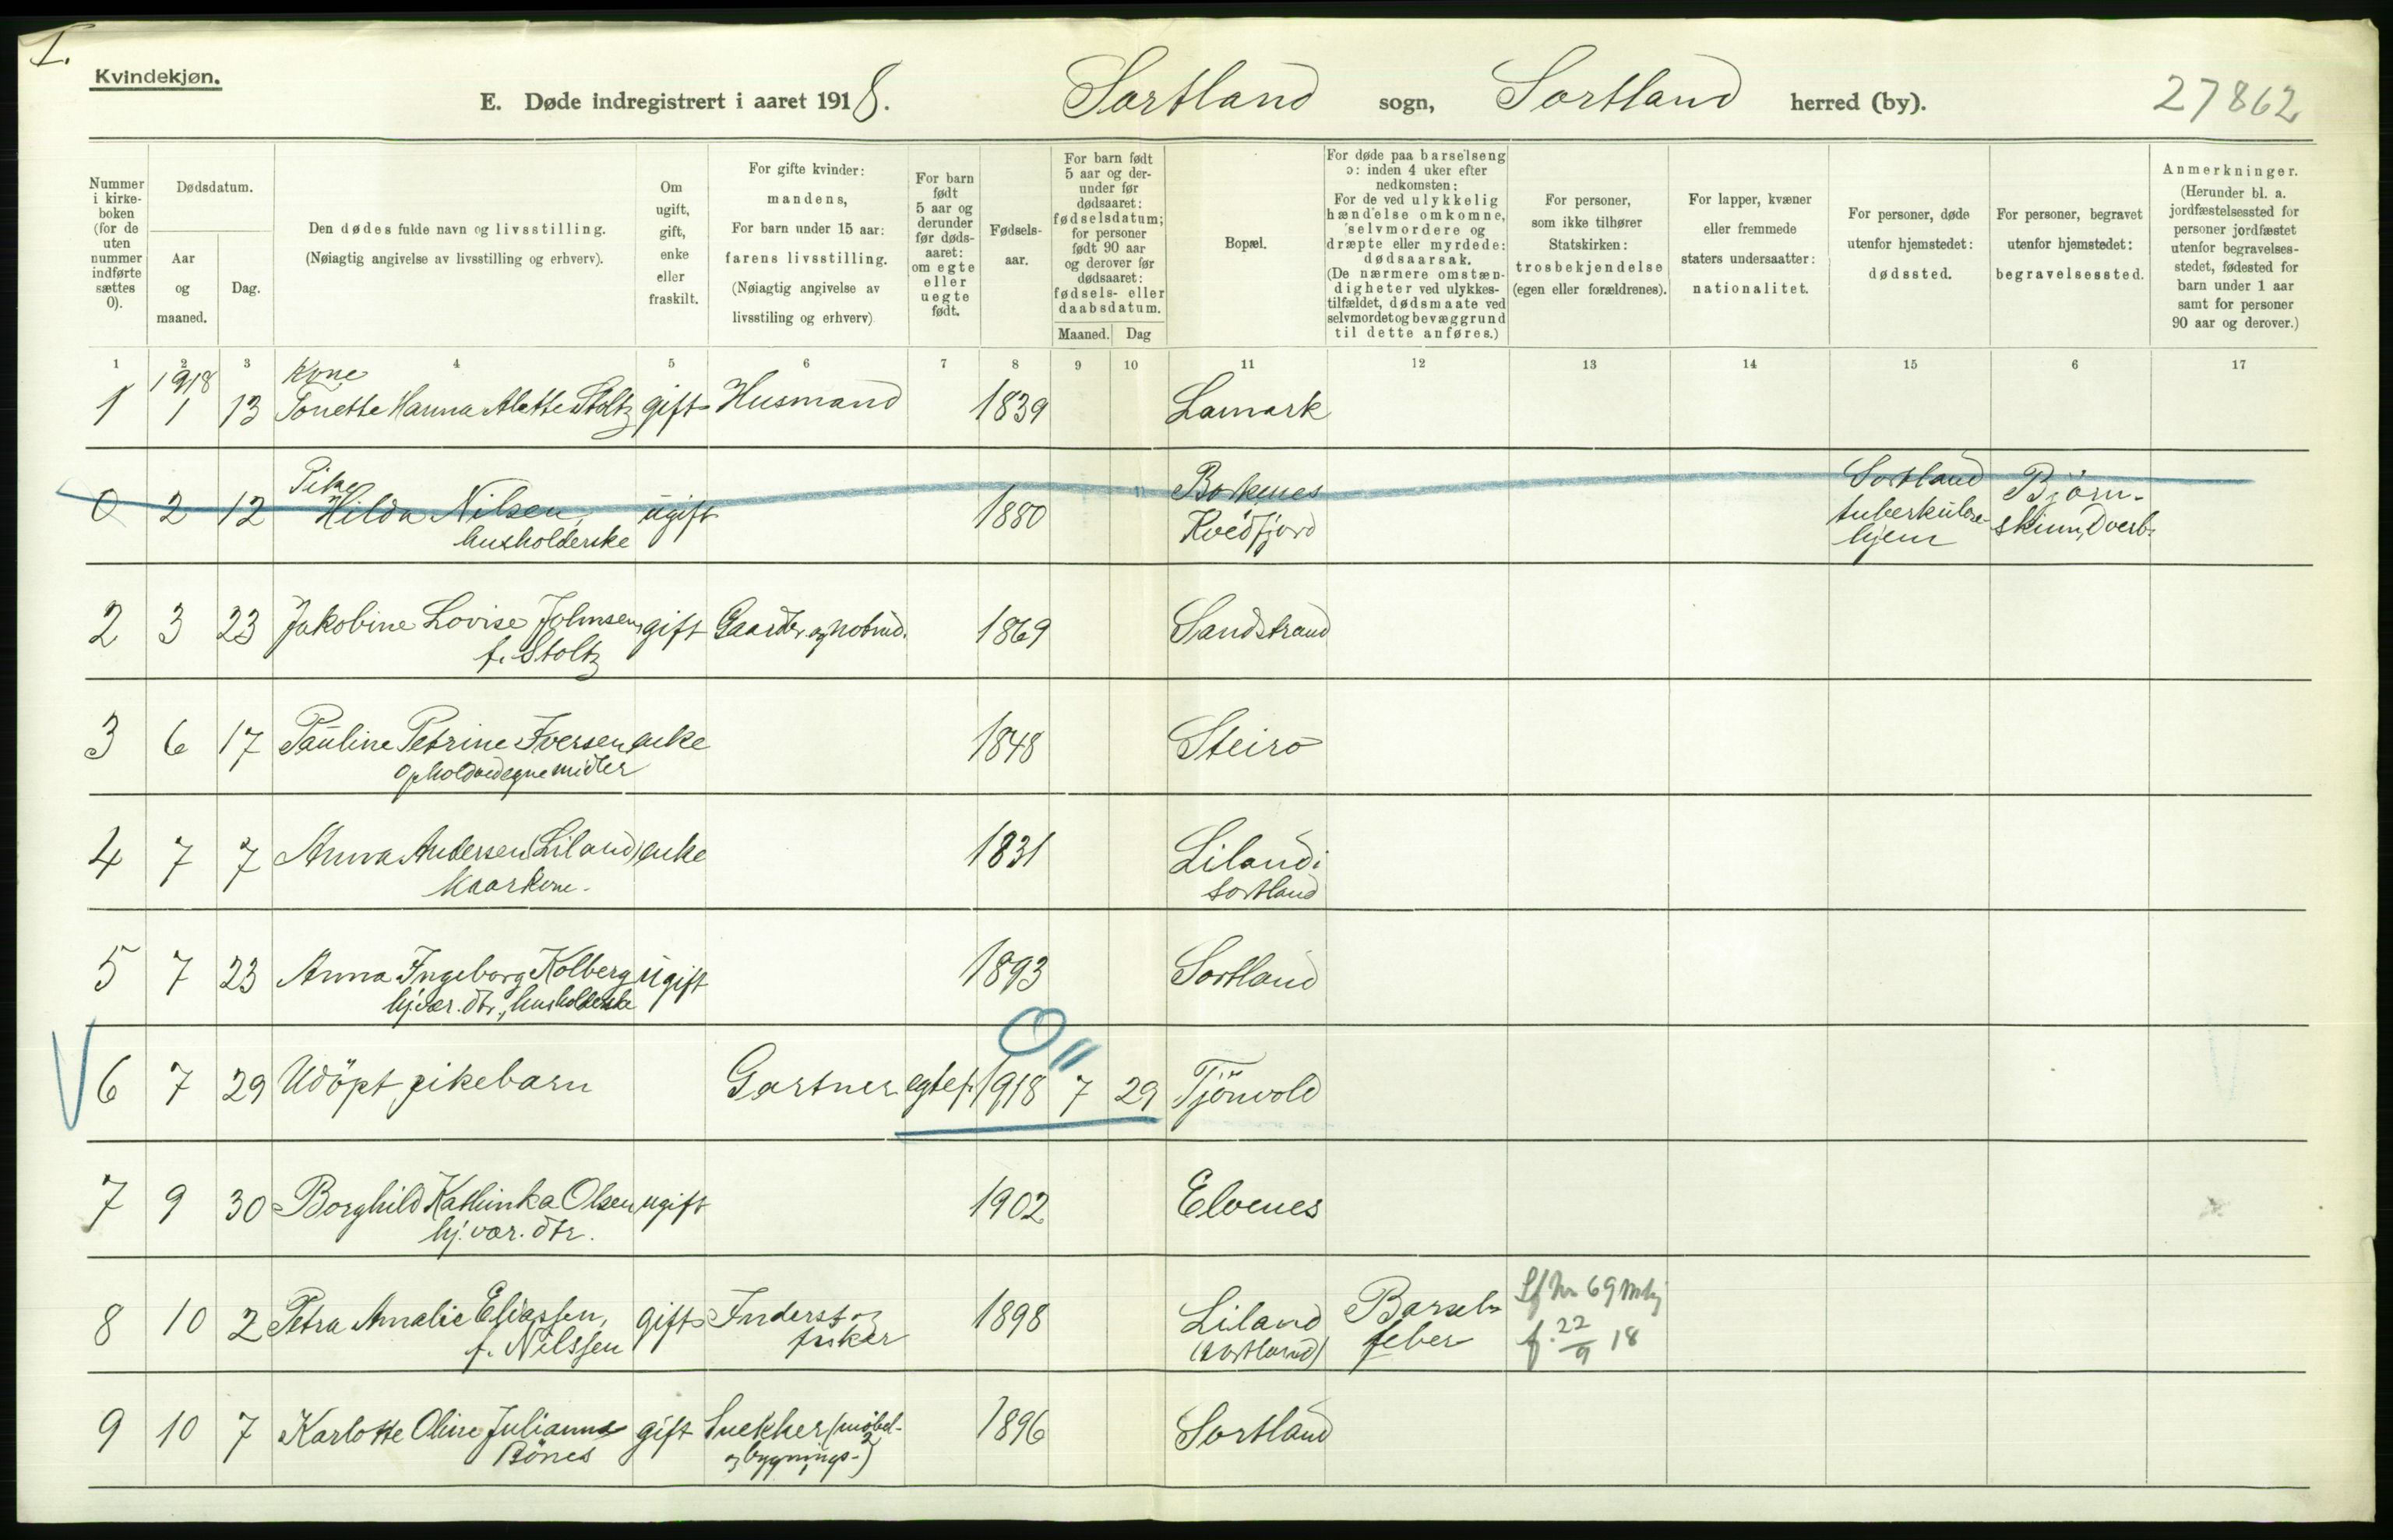 I.
Kvindekjøn.
E. Døde indregistrert i aaret 1918. Sortland sogn, Sortland herred (by). 27862
Nummer i kirkeboken (for de uten nummer indførte sættes 0).
Dødsdatum.
Aar og maaned.
Dag.
Den dødes fulde navn og livsstilling.
(Nøiagtig angivelse av livsstilling og erhverv).
Om ugift, gift, enke eller fraskilt.
For gifte kvinder: mandens,
For barn under 15 aar: farens livsstilling.
(Nøiagtig angivelse av livsstiling og erhverv)
For barn født 5 aar og derunder før dødsaaret: om egte eller uegte født.
Fødselsaar.
For barn født 5 aar og derunder før dødsaaret: fødselsdatum; for personer født 90 aar og derover før dødsaaret: fødsels- eller daabsdatum.
Maaned. Dag
Bopæl.
For døde paa barselseng ɔ: inden 4 uker efter nedkomsten:
For de ved ulykkelig hændelse omkomne, selvmordere og dræpte eller myrdede: dødsaarsak.
(De nærmere omstændigheter ved ulykkestilfældet, dødsmaate ved selvmordet og bevæggrund til dette anføres.)
For personer, som ikke tilhører Statskirken: trosbekjendelse (egen eller forældrenes).
For lapper, kvæner eller fremmede staters undersaatter: nationalitet.
For personer, døde utenfor hjemstedet: dødssted.
For personer, begravet utenfor hjemstedet: begravelsessted.
Anmerkninger.
(Herunder bl. a. jordfæstelsessted for personer jordfæstet utenfor begravelsesstedet, fødested for barn under 1 aar samt for personer 90 aar og derover.)
1 2 3 4 5 6 7 8 9 10 11 12 13 14 15 6 17
1918 Kone
1 1 13 Tonette Hanna Alette Stoltz gift Husmand 1839 Lamark
Pike
0 2 12 Hilda Nilsen, ugift 1880 Borkenes Sortland Björn-
husholderske Kvedfjord tuberkulose- skinn, Dverb.
hjem
2 3 23 Jakobine Lovise Johnsen, gift Gaardbr. og notbrud. 1869 Sandstrand
f. Stoltz
3 6 17 Pauline Petrine Iversen enke 1848 Steiro
Ophold ved egne midler
4 7 7 Anna Andersen (Liland) enke 1831 Liland i
Kaarkone. Sortland
5 7 23 Anna Ingeborg Kolberg ugift 1893 Sortland
hj.vær. dtr., husholderske
6 7 29 Udöpt pikebarn Gartner egtef. 1918 7 29 Tjönvold
7 9 30 Borghild Kathinka Olsen ugift 1902 Elvenes
hj. vær. dtr.
8 10 2 Petra Amalie Eliassen, gift Inderst og 1898 Liland Barsel- 69
f. Nilssen fisker (Sortland) feber f. 22/9 18
9 10 7 Karlotte Oline Julianna gift Snekker (möbel- 1896 Sortland
Bönes og bygnings-)